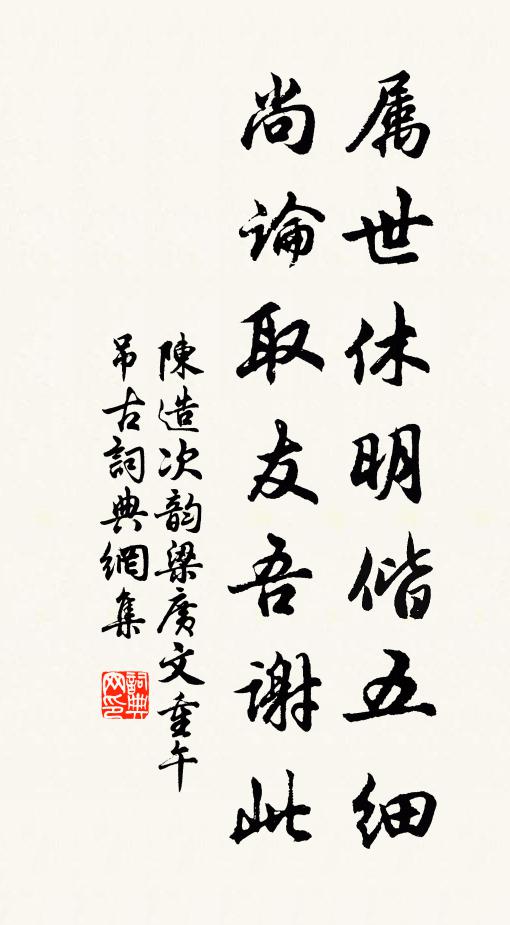 属世休明偕五细
尚論取友吾謝此
陳造次韵梁廣文重午
吊古詞典網集
詞典网印